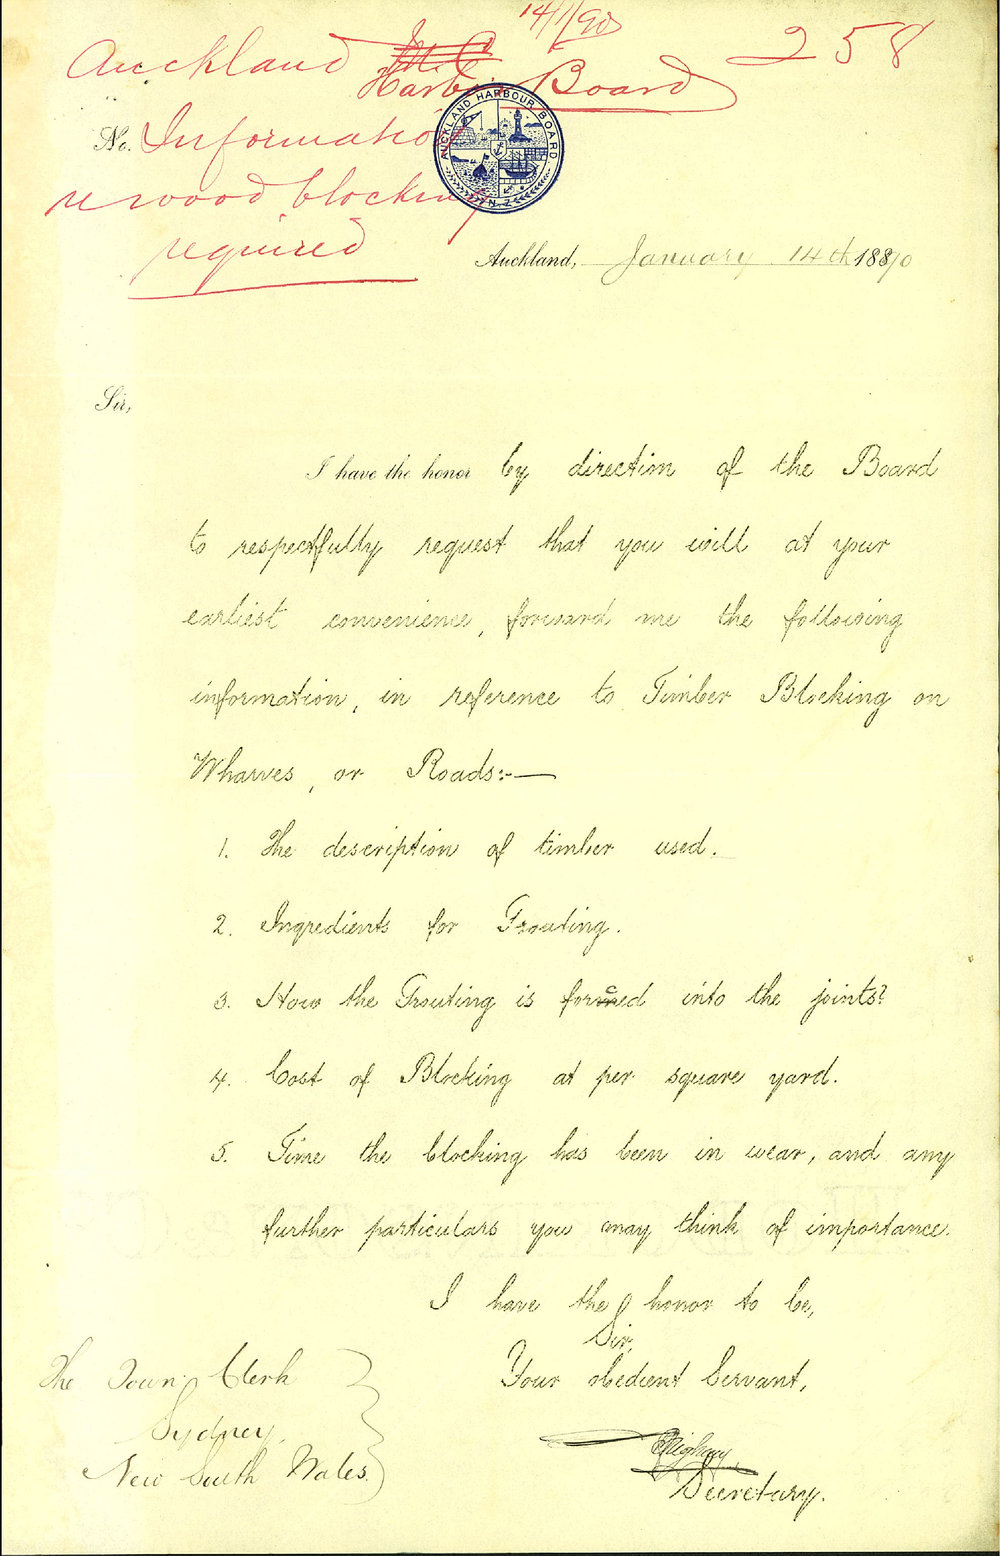 14/1/90
258
Auckland Harbor Board
No. Information
re wood blocking
required
AUCKLAND HARBOUR BOARD.
N.Z.
Auckland, January 14th 1890
Sir,
I have the honor by direction of the Board
to respectfully request that you will at your
earliest convenience, forward me the following
information, in reference to Timber Blocking on
Wharves, or Roads:-—
1. The description of timber used.
2. Ingredients for Grouting.
3. How the Grouting is forced into the joints?
4. Cost of Blocking at per square yard.
5. Time the blocking has been in wear, and any
further particulars you may think of importance.
I have the honor to be,
Sir,
Your obedient Servant,
Secretary.
The Town Clerk
Sydney,
New South Wales.